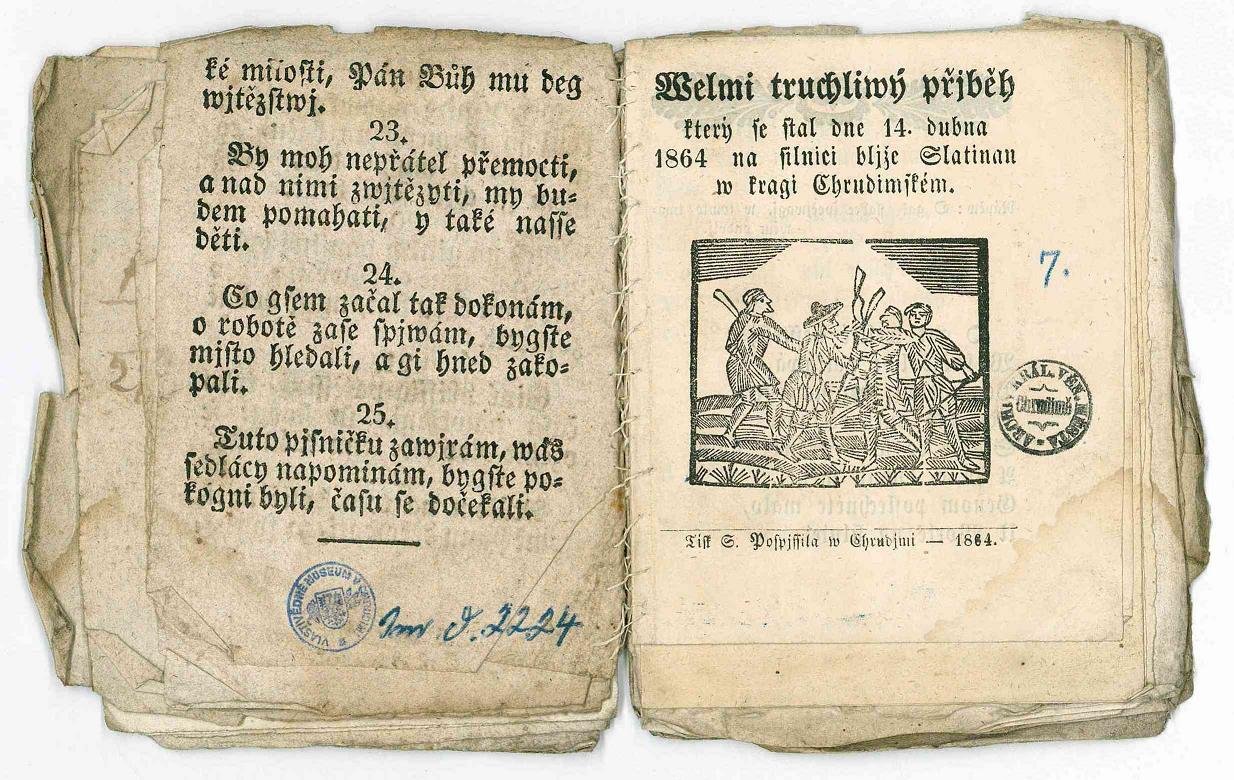 ké milosti, Pán Bůh mu deg
wjtězstwj.
23.
By moh nepřátel přemocti,
a nad nimi zwjtězyti, my bu-
dem pomahati, y také nasse
děti.
24.
Co gsem začal tak dokonám,
o robotě zase spjwám, bygste
mjsto hledali, a gi hned zako-
pali.
25.
Tuto pjsničku zawjrám, wás
sedlácy napomínám, bygste po-
kogni byli, času se dočekali.
VLASTIVĚDNÉ MUSEUM V
Inv. J. 2224
1
2
Welmi truchliwý přjběh
který se stal dne 14. dubna
1864 na silnici bljže Slatinan
w kragi Chrudimském.
7.
KRÁL. VĚN. MĚSTA
Chrudimě
Tisk S. Pospjssila w Chrudjmi — 1864.